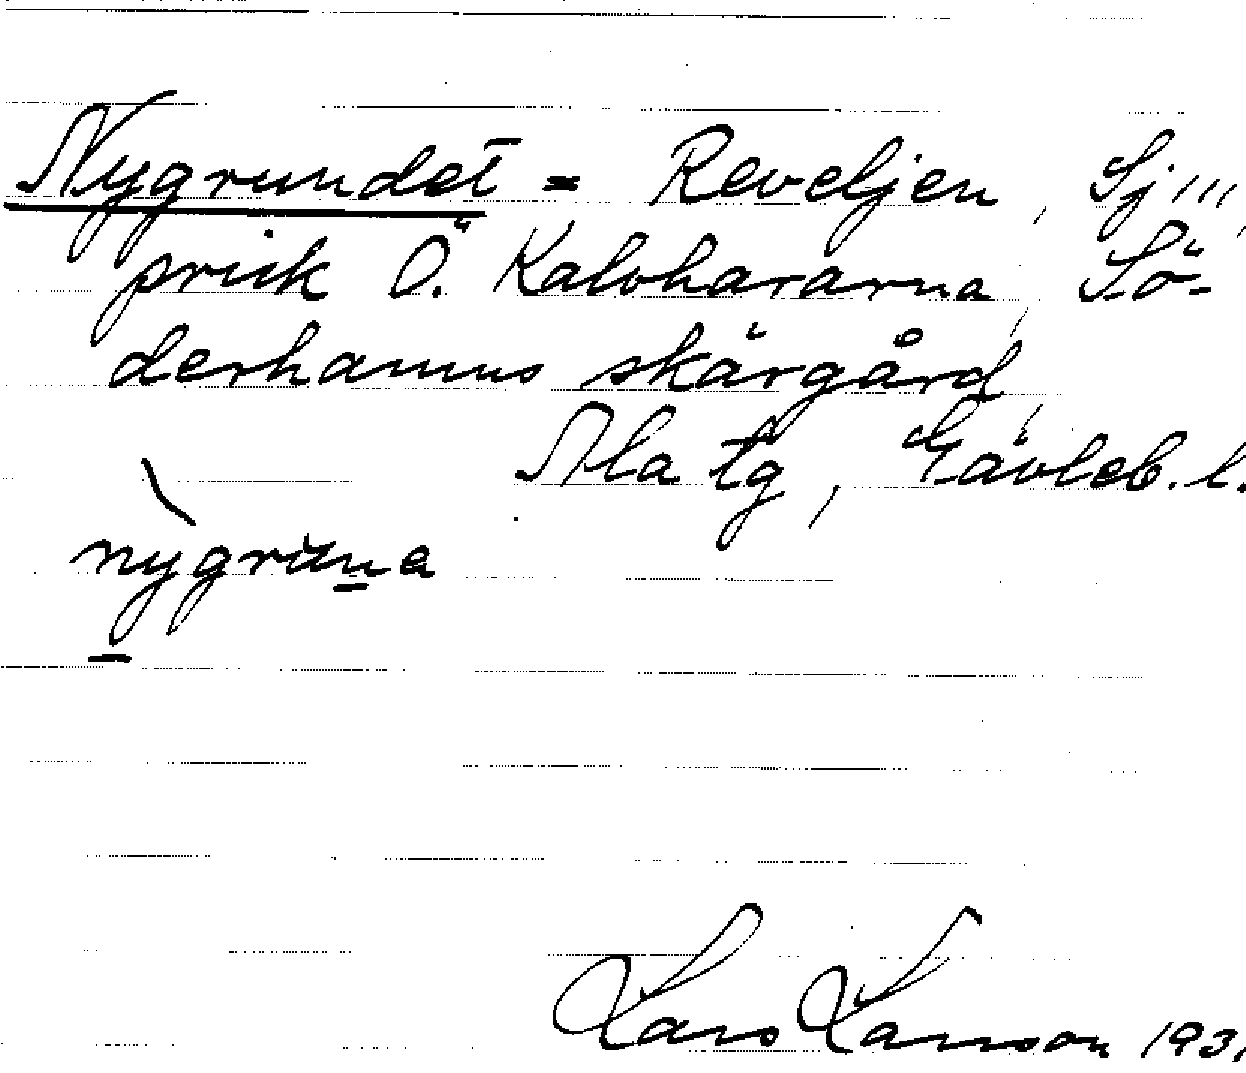 Nygrundet = Reveljen, Sj III,
prick Ö. Kalvhararna, Sö-
derhamns skärgård,
Ala tg, Gävleb. l.
nygruna
Lars Larsson 193